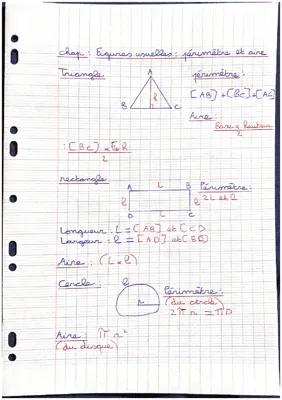 chap : Figures usuelles : périmètre et aire
Triangle
périmètre :
A
h
B
C
[AB] + [BC] + [AC]
Aire :
base × hauteur
2
: [BC] ×
2
rectangle
A
L
B
Périmètre :
l
l
2L et l
D
L
C
Longueur : L = [AB] et [CD
Largeur : l = [AD] et [BC]
Aire : (L × l)
Cercle :
Périmètre :
(du cercle)
r
2πr = πD
Aire : π r²
(du disque)